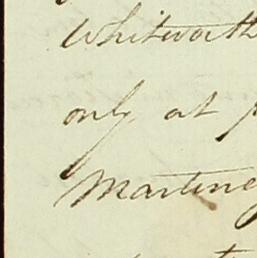 Whitworth
only at
Martine